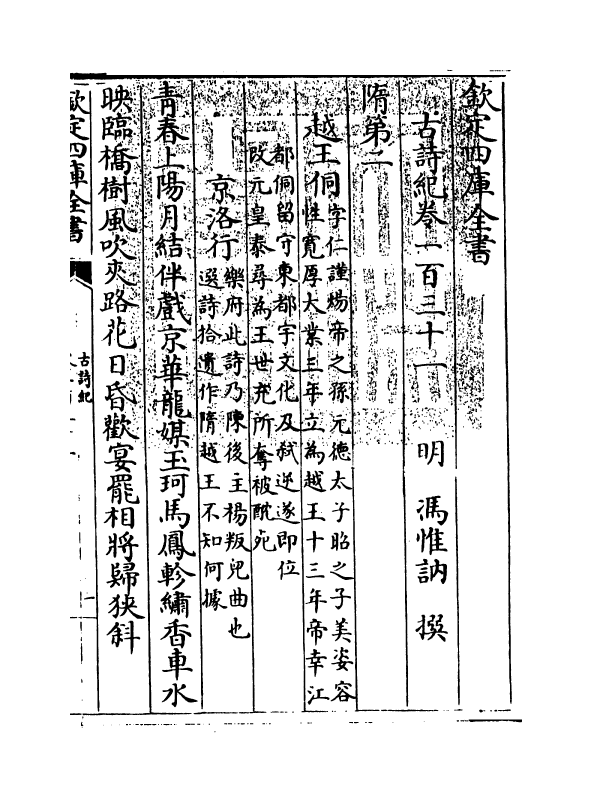 欽定四庫全書
古詩紀卷一百三十一　明　馮惟訥　撰
隋第二
越王侗
字仁謹楊帝之孫元德太子昭之子美姿容
性寬厚大業三年立為越王十三年帝幸江
都侗留守東都宇文化及弑逆遂即位
改元皇泰尋為王世充所奪被酖死
京洛行
樂府此詩乃陳後主楊叛兒曲也
選詩拾遺作隋越王不知何據
青春上陽月結伴戲京華龍媒玉珂馬鳳軫繡香車水
映臨橋樹風吹夾路花日昏歡宴罷相將歸狹斜
欽定四庫全書
古詩紀
一